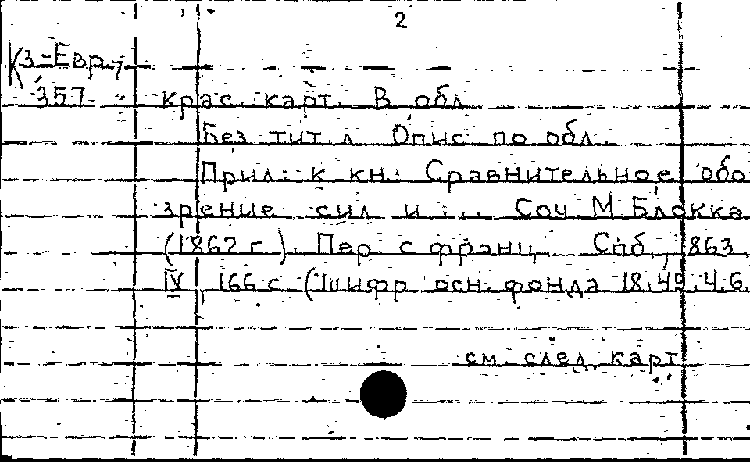 2
К3-Евр.,
357
крас. карт. В обл.
Без тит. л. Опис. по обл.
Прил.: к кн.: Сравнительное обо
зрение сил и ... Соч. М. Блокка
(1862 г.). Пер. с франц. Спб., 1863.
IV, 166 с. (Шифр осн. фонда 18.49.4.6.
см. след. карт.